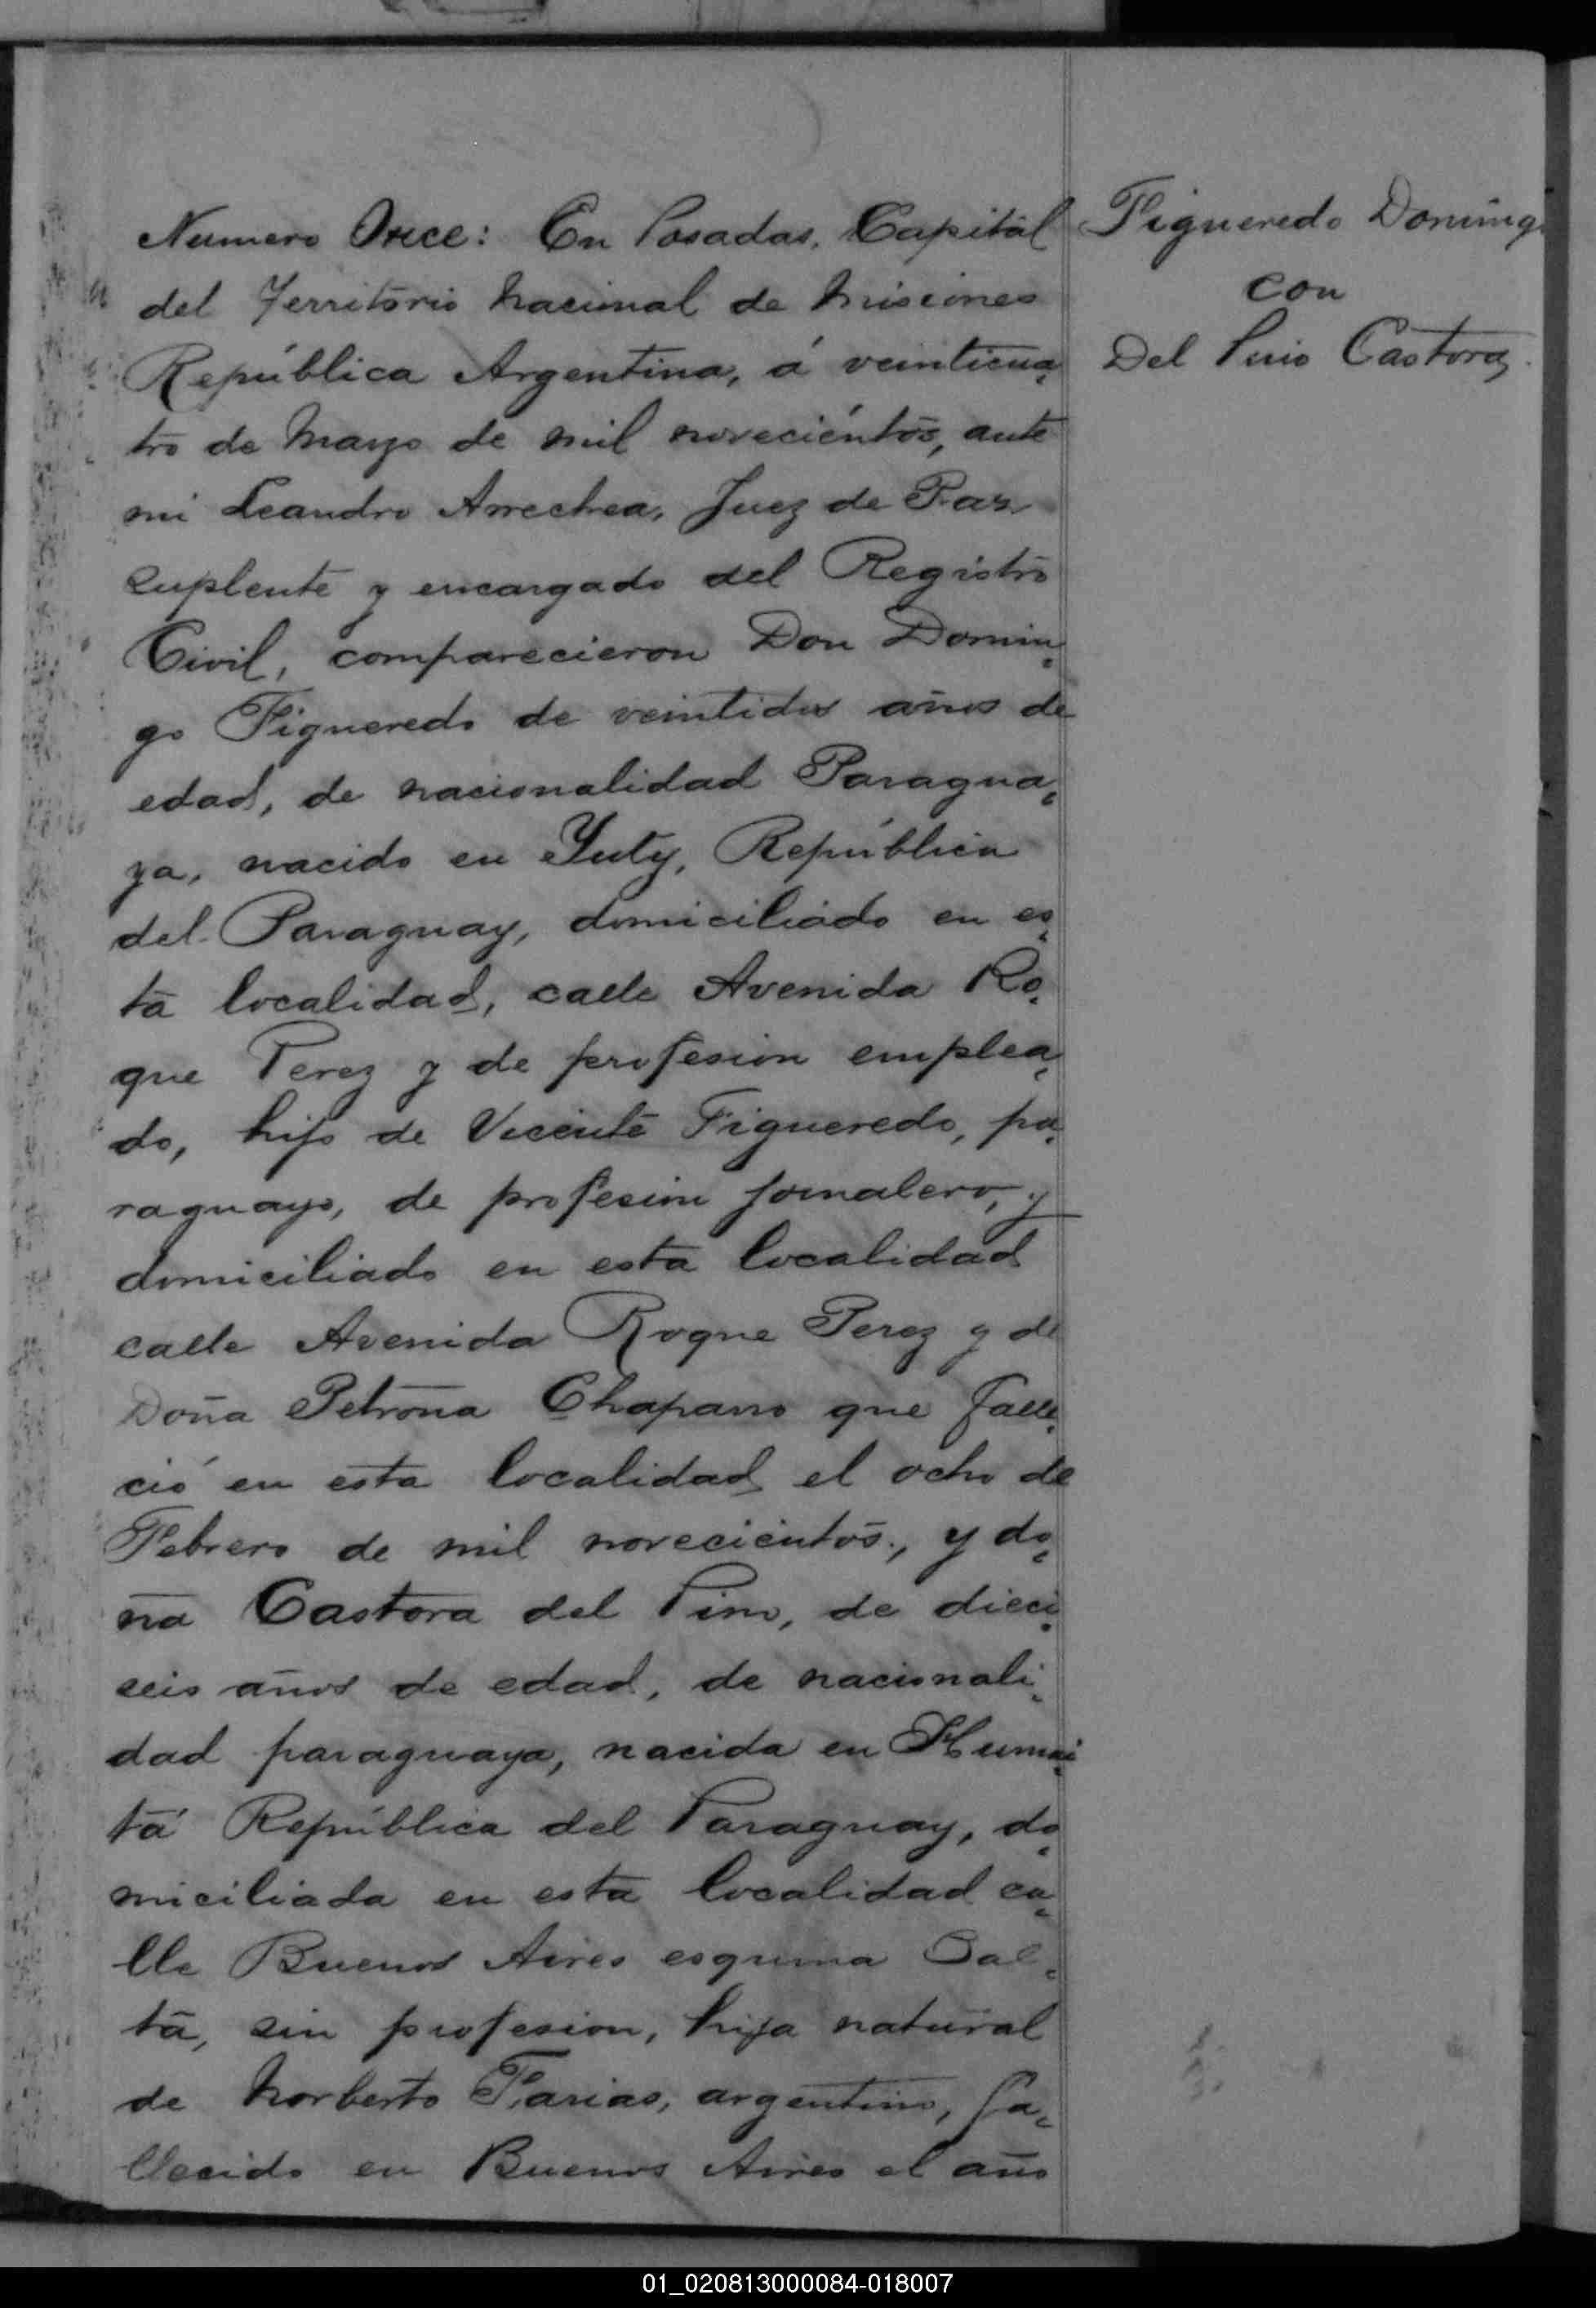 Numero Once: En Posadas, Capital
del Territorio Nacional de Misiones
República Argentina, á veinticua
tro de Mayo de mil novecientos, ante
mi Leandro Arrechea, Juez de Paz
suplente y encargado del Registro
Civil, comparecieron Don Domin
go Figueredo de veintidos años de
edad, de nacionalidad Paragua
ya, nacido en Yuty, República
del Paraguay, domiciliado en es
ta localidad, calle Avenida Ro
que Perez y de profesion emplea
do, hijo de Vicente Figueredo, pa
raguayo, de profesion jornalero, y
domiciliado en esta localidad
calle Avenida Roque Perez y de
Doña Petrona Chaparro que falle
ció en esta localidad el ocho de
Febrero de mil novecientos, y do
ña Castora del Pino, de dieci
seis años de edad, de nacionali
dad paraguaya, nacida en Humai
tá República del Paraguay, do
miciliada en esta localidad ca
lle Buenos Aires esquina Sal
ta, sin profesion, hija natural
de Norberto Farias, argentino, fa
llecido en Buenos Aires el año
Figueredo Doming
con
Del Pino Castora
01_020813000084-018007